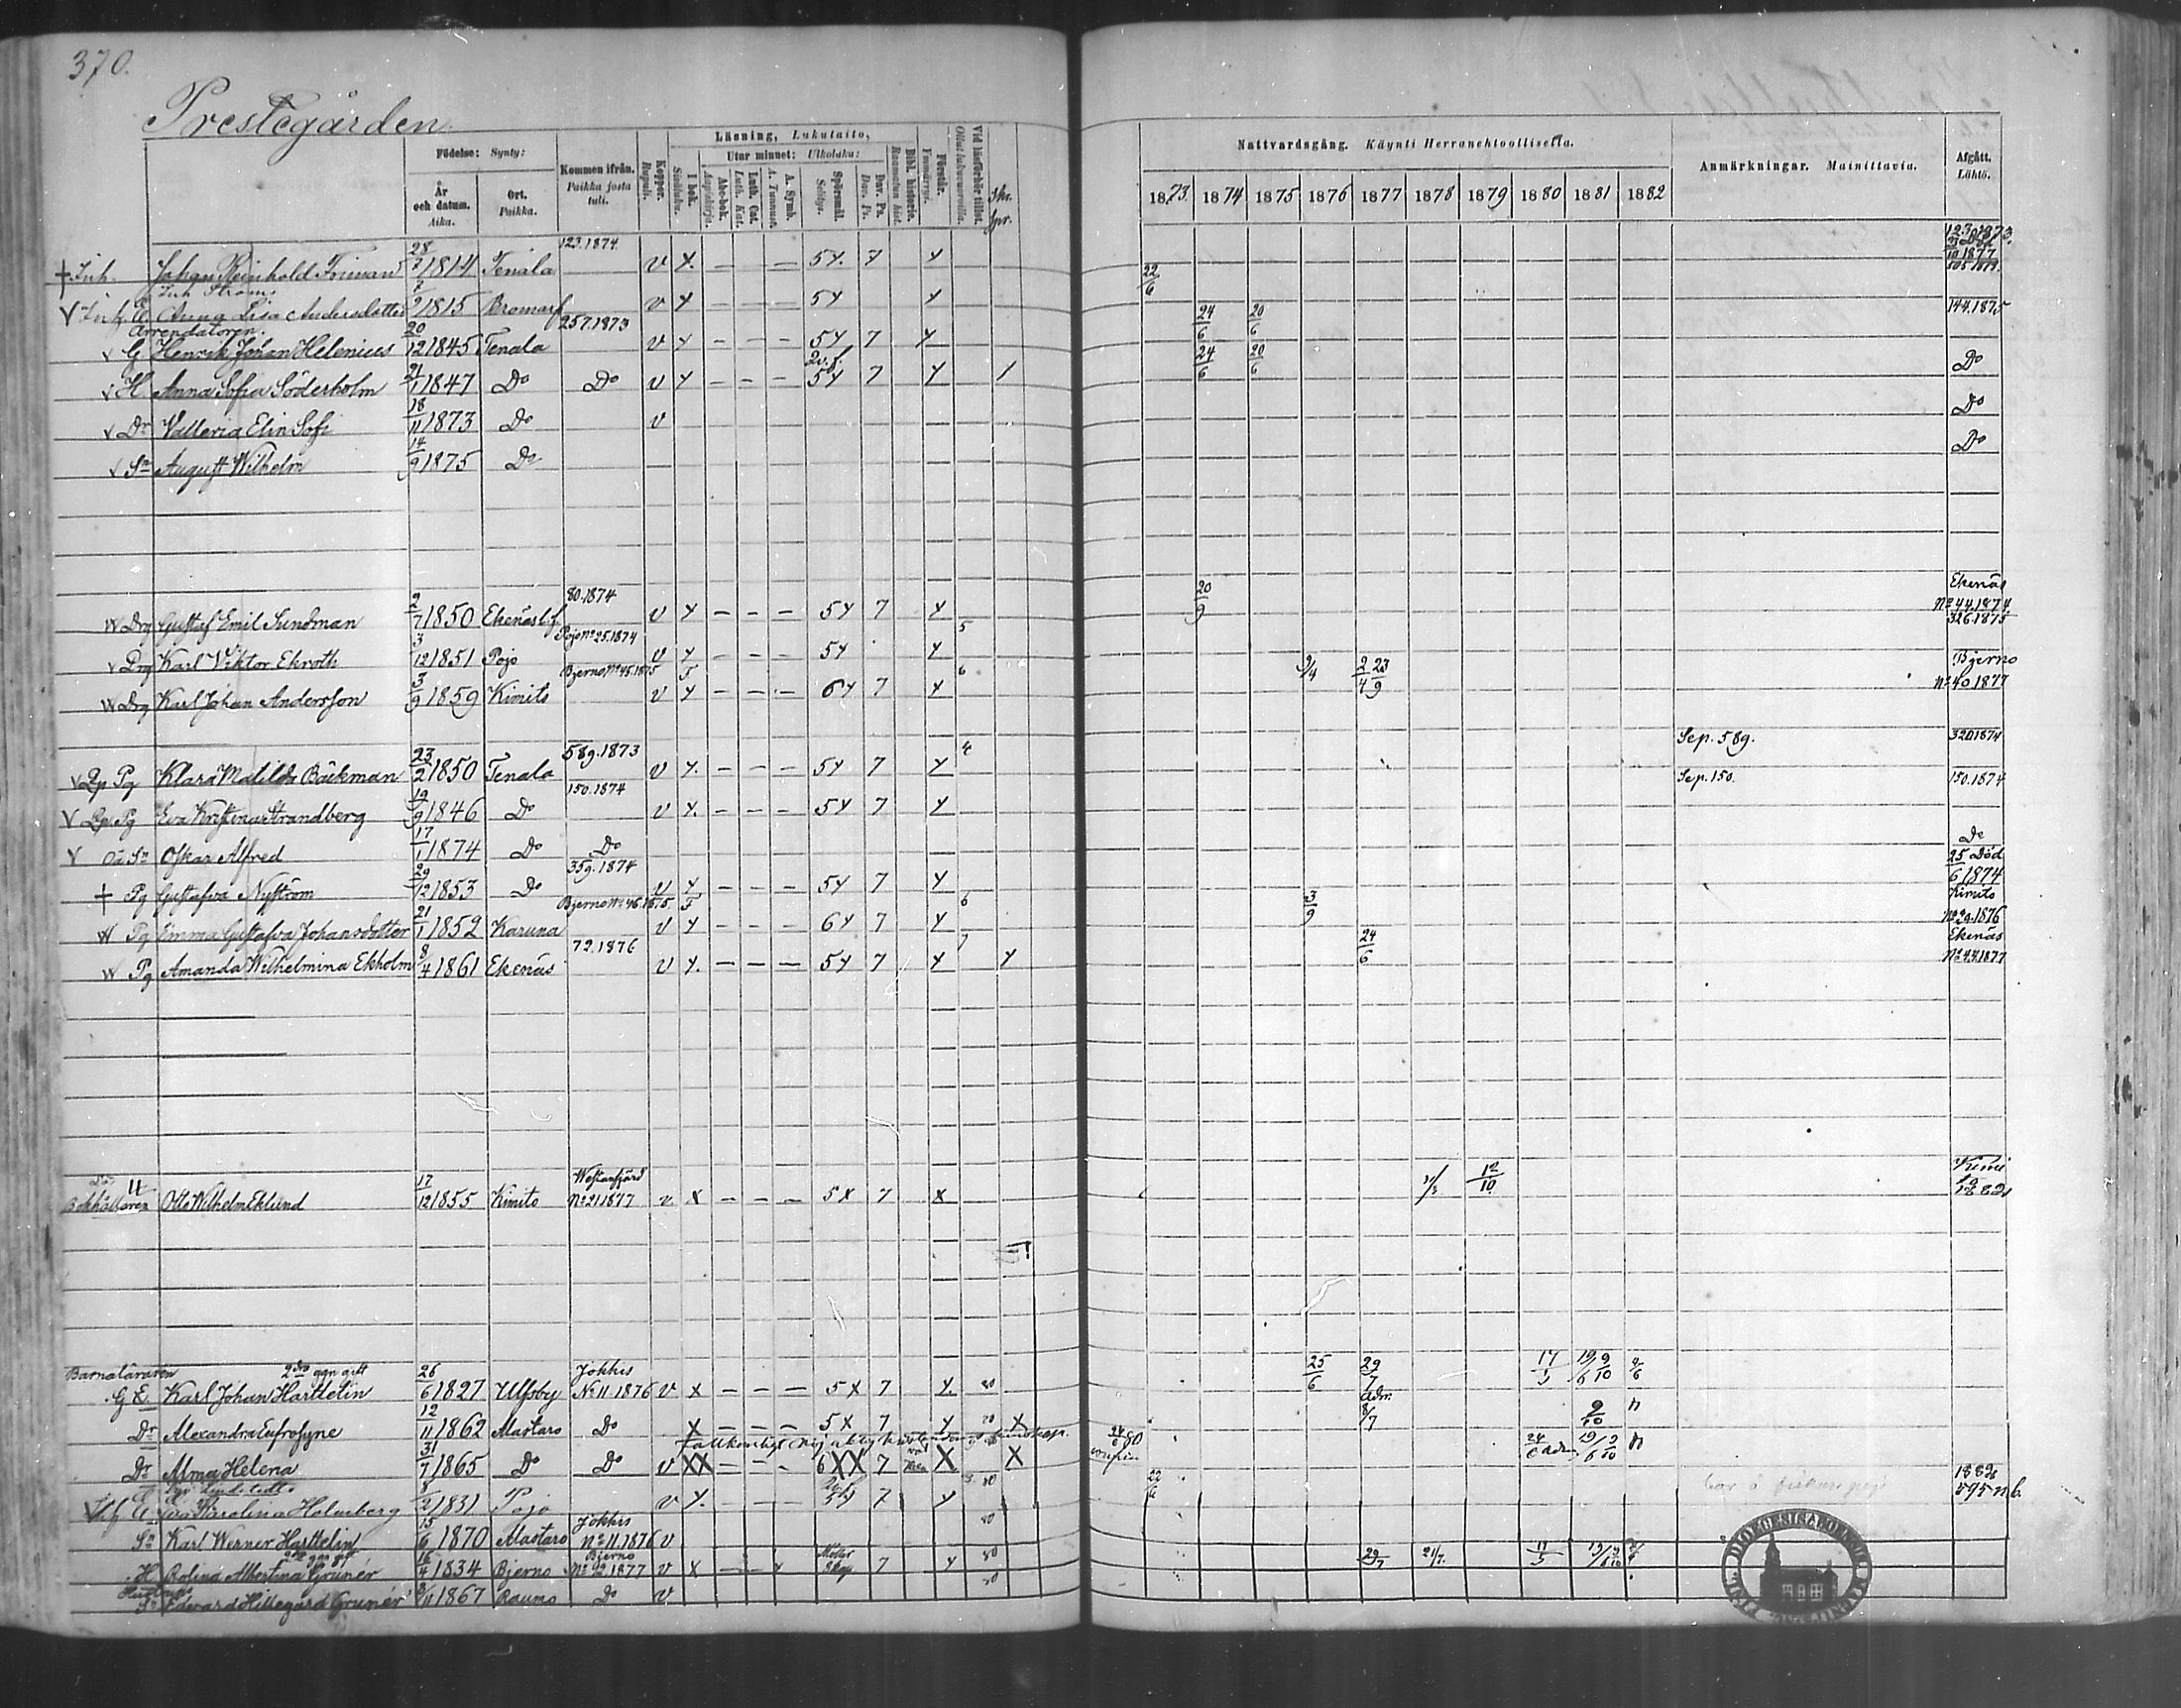 370.
Prestegården.
Födelse: Synty:
År och datum. Aika.
Ort. Paikka.
Kommen ifrån. Paikka josta tuli.
Koppor. Rupuli.
Läsning, Lukutaito,
I bok. Sisäluku.
Utur minnet: Ulkoluku:
Abc-bok. Aapiskirja.
Luth. Cat. Luth. Kat.
A. Symb. A. Tunnust.
Spörsmål. Selitys.
Dav. Ps. Dav. Ps.
Bibl. historia. Raamatun hist.
Förstår. Ymmärrys.
Vid läsförhör tillst. Ollut lukuvuoroilla.
Skr.
Spr.
Nattvardsgång. Käynti Herranehtoollisella.
1873. 1874 1875 1876 1877 1878 1879 1880 1881 1882
Anmärkningar. Mainittavia.
Afgått. Lähtö.
† Inh. Johan Reinhold Friman 28/7 1814 Tenala 123.1874. v Y. — — — 5Y. 7 Y 22/6
Inh. E. Anna Lisa Andersdotter 2/9 1815 Bromarf v Y — — — 5Y Y 24/6 20/6 144.1875
Arrendatoren.
v G Henrik Johan Helenius 20/12 1845 Tenala 257.1873 v Y — — — 5Y 7 Y 24/6 20/6
v H Anna Sofia Söderholm 21/1 1847 Do Do v Y — — — 5Y 7 Y / Do
v Dr Valleria Elin Sofi 18/11 1873 Do v Do
v Sn August Wilhelm 14/9 1875 Do Do
W Drg Gustaf Emil Sundman 2/7 1850 Ekenäs l.f. 80.1874 v Y — — — 5Y 7 Y 20/9 Ekenäs No 44.1874.
v Drg Karl Viktor Ekroth 3/12 1851 Pojo Pojo No 25.1874 v Y 5Y Y 5 326.1875
W Drg Karl Johan Andersson 3/9 1859 Kimito Bjerno No 45.1875 v Y — — — 6Y 7 Y 6 9/4 2/4 23/9 Bjerno No 40 1877
v Lp Pg Klara Matilda Bäckman 23/2 1850 Tenala 589.1873 v Y. — — — 5Y 7 Y 4 Sep. 589. 320.1874
V Lp. Pg Eva Kristina Strandberg 19/9 1846 Do 150.1874 v Y. — — — 5Y 7 Y Sep. 150. 150.1874
V Oä Sn Oskar Alfred 17/1 1874 Do Do Do
† Pg Gustafva Nyström 29/12 1853 Do 359.1874 v Y — — — 5Y 7 Y 25 Död 6 1874
W Pg Emma Gustafva Johansdotter 21/1 1852 Karuna Bjerno No 46.1875. v Y — — — 6Y 7 Y 6 3/9 Kimito No 29.1876
W Pg Amanda Wilhelmina Ekholm 8/4 1861 Ekenäs 72.1876 v Y. — — — 5Y 7 Y 7 Y 24/6 Ekenäs No 44.1877
Bokhållaren Otto Wilhelm Eklund 17/12 1855 Kimito Westanfjärd No 21.1877 v X — — — 5X 7 X 12/10
Barnaläraren 2dra ggn gift
G E. Karl Johan Harttelin 26/6 1827 Ulfsby Jokkis No 11.1876 v X — — — 5X 7 Y. 80 25/6 29/7 17/5 19/6 9/10
Dr Alexandra Eufrosyne 12/11 1862 Mastaro Do X — — — 5X 7 Y X adm. 8/7 9/10
Dr Alma Helena 31/7 1865 Do Do v XX — — — 6XX 7 X X 24/6 adm. 19/6 9/10
Eva Karolina Holmberg 8/2 1831 Pojo v Y. — — — 7 Y 80 22/6
Sn Karl Werner Harttelin 15/6 1870 Mastaro Jokkis No 11.1876 v 80
H Rolina Albertina Grunér 16/4 1834 Bjerno Bjerno No 92.1877 v X — — 7 Y 80 29/7 21/7.
Sn Edward Hillegard Grunér 1867 Raumo Do v 80